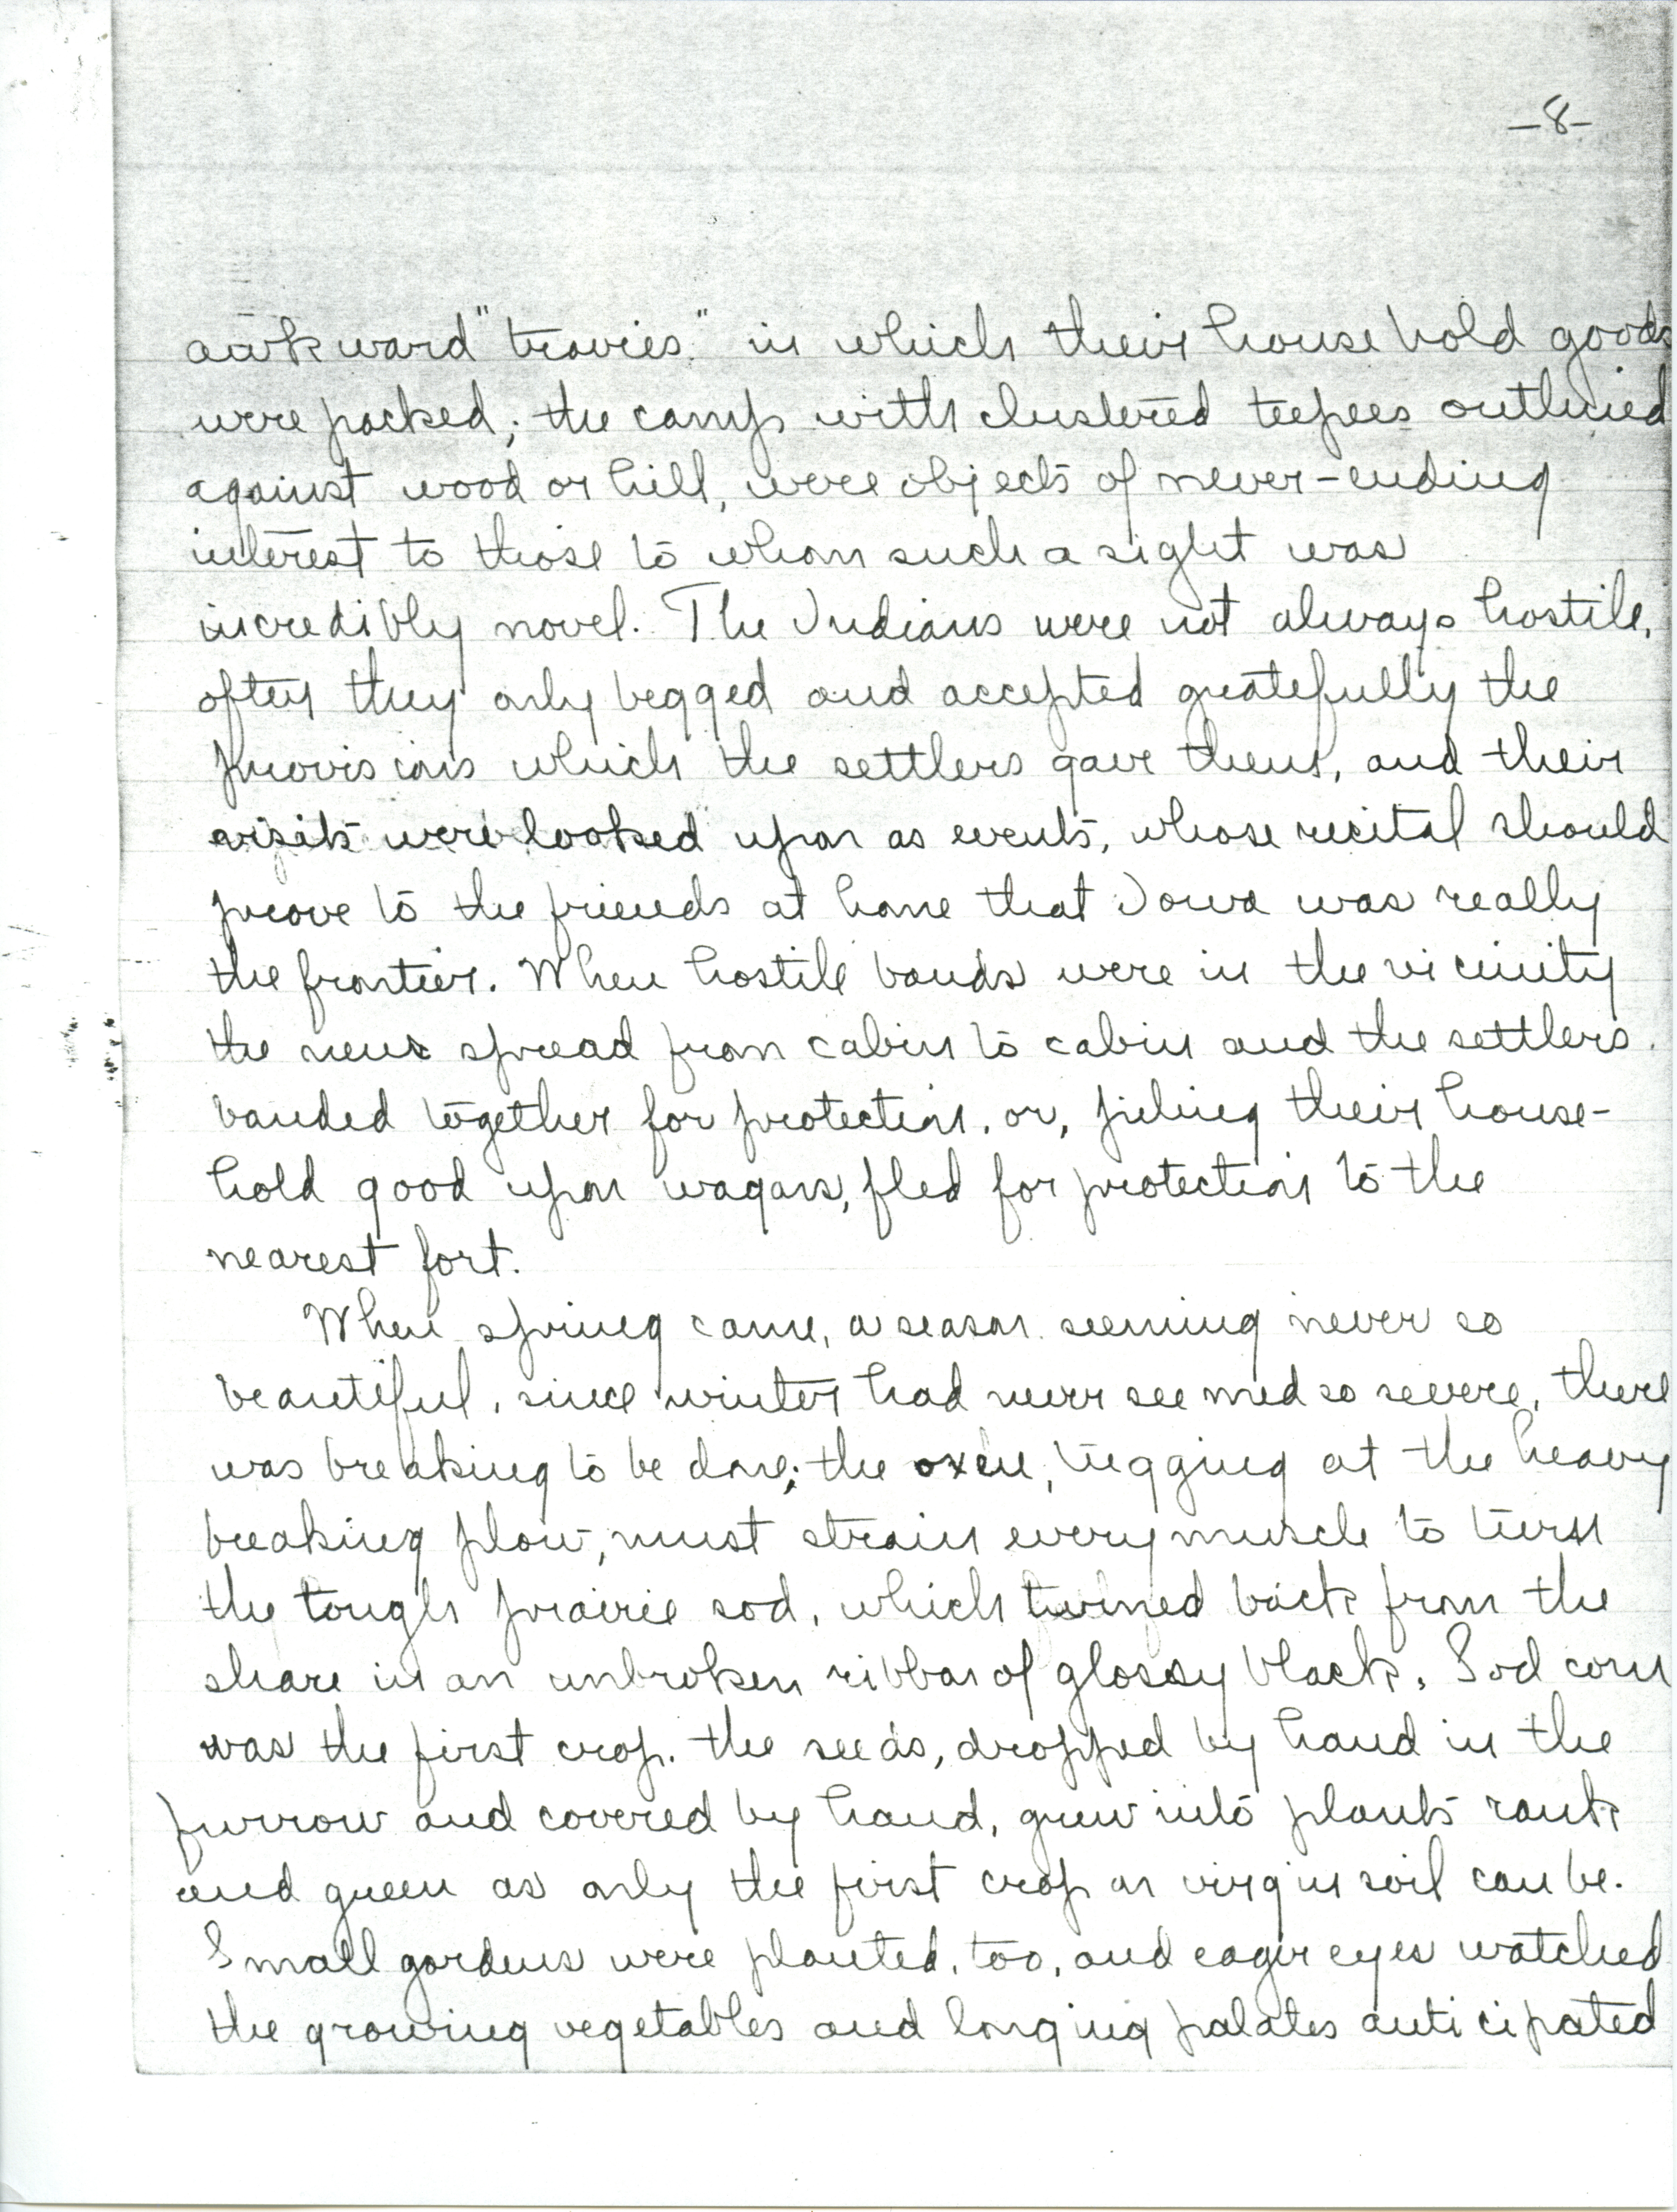 -8-
awkward "travies" in which their household goods
were packed; the camp with clustered teepees outlined
against wood or hill, were objects of never-ending
interest to those to whom such a sight was
incredibly novel. The Indians were not always hostile,
often they only begged and accepted gratefully the
provisions which the settlers gave them, and their
visits were looked upon as events, whose recital should
prove to the friends at home that Iowa was really
the frontier. When hostile bands were in the vicinity
the news spread from cabin to cabin and the settlers
banded together for protection, or, piling their house-
hold good upon wagons, fled for protection to the
nearest fort.
When spring came, a season seeming never so
beautiful, since winter had never seemed so severe, there
was breaking to be done; the oxen, tugging at the heavy
breaking plow, must strain every muscle to turn
the tough prairie sod, which turned back from the
share in an unbroken ribbon of glossy black. Sod corn
was the first crop. the seeds, dropped by hand in the
furrow and covered by hand, grew into plants rank
and green as only the first crop on virgin soil can be.
Small gardens were planted, too, and eager eyes watched
the growing vegetables and longing palates anticipated